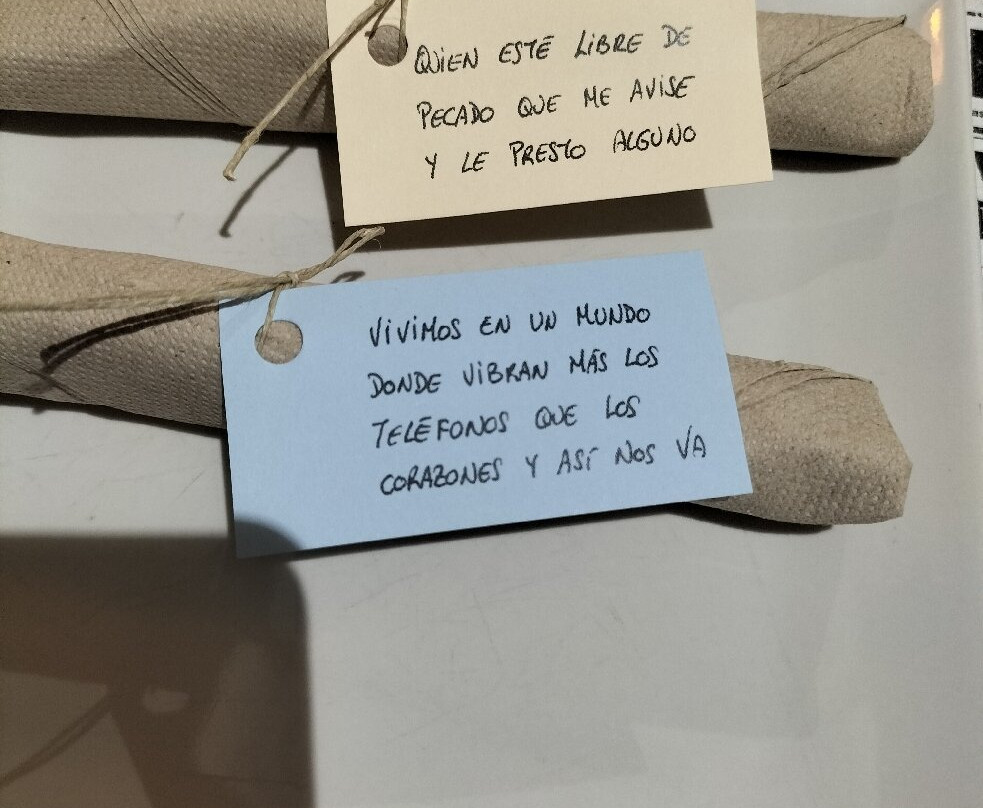 QUIEN ESTÉ LIBRE DE
PECADO QUE ME AVISE
Y LE PRESTO ALGUNO
VIVIMOS EN UN MUNDO
DONDE VIBRAN MÁS LOS
TELÉFONOS QUE LOS
CORAZONES Y ASÍ NOS VA